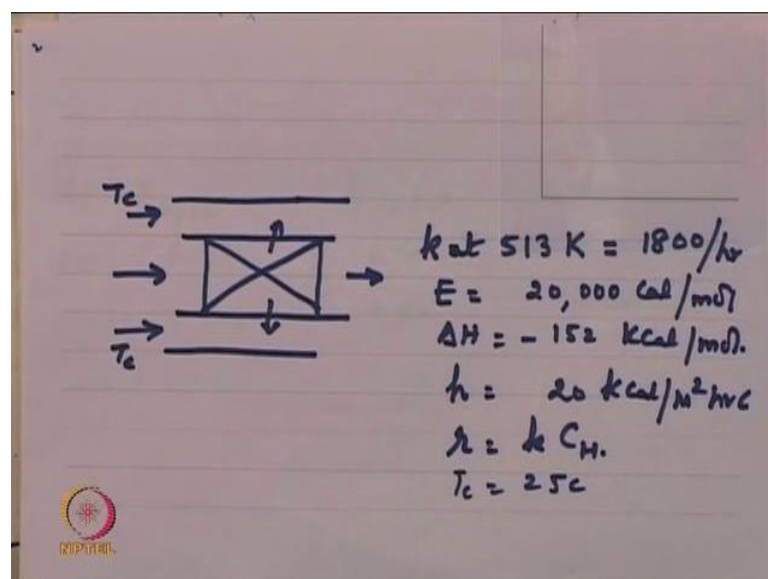 2
Tc
k at 513 K = 1800/hr
E = 20,000 Cal/mol
ΔH = - 152 KCal/mol.
h = 20 kCal/m² hr c
Tc
r = k CH.
Tc = 25c
NPTEL